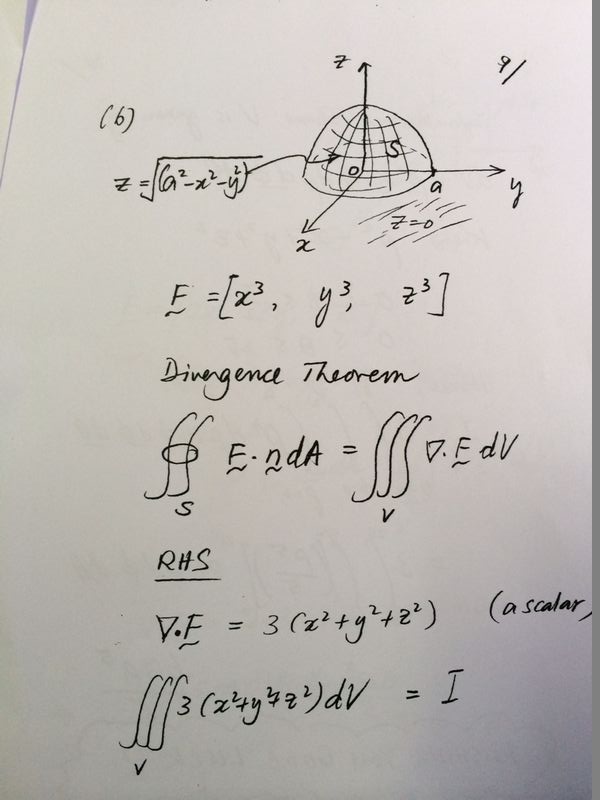 9/
(b)
z
z = √(a²-x²-y²)
S
o
a
y
x
z=0
F = [x³, y³, z³]
Divergence Theorem
∯_S F · n dA = ∭_V ∇·F dV
RHS
∇·F = 3(x²+y²+z²) (a scalar)
∭_V 3(x²+y²+z²)dV = I